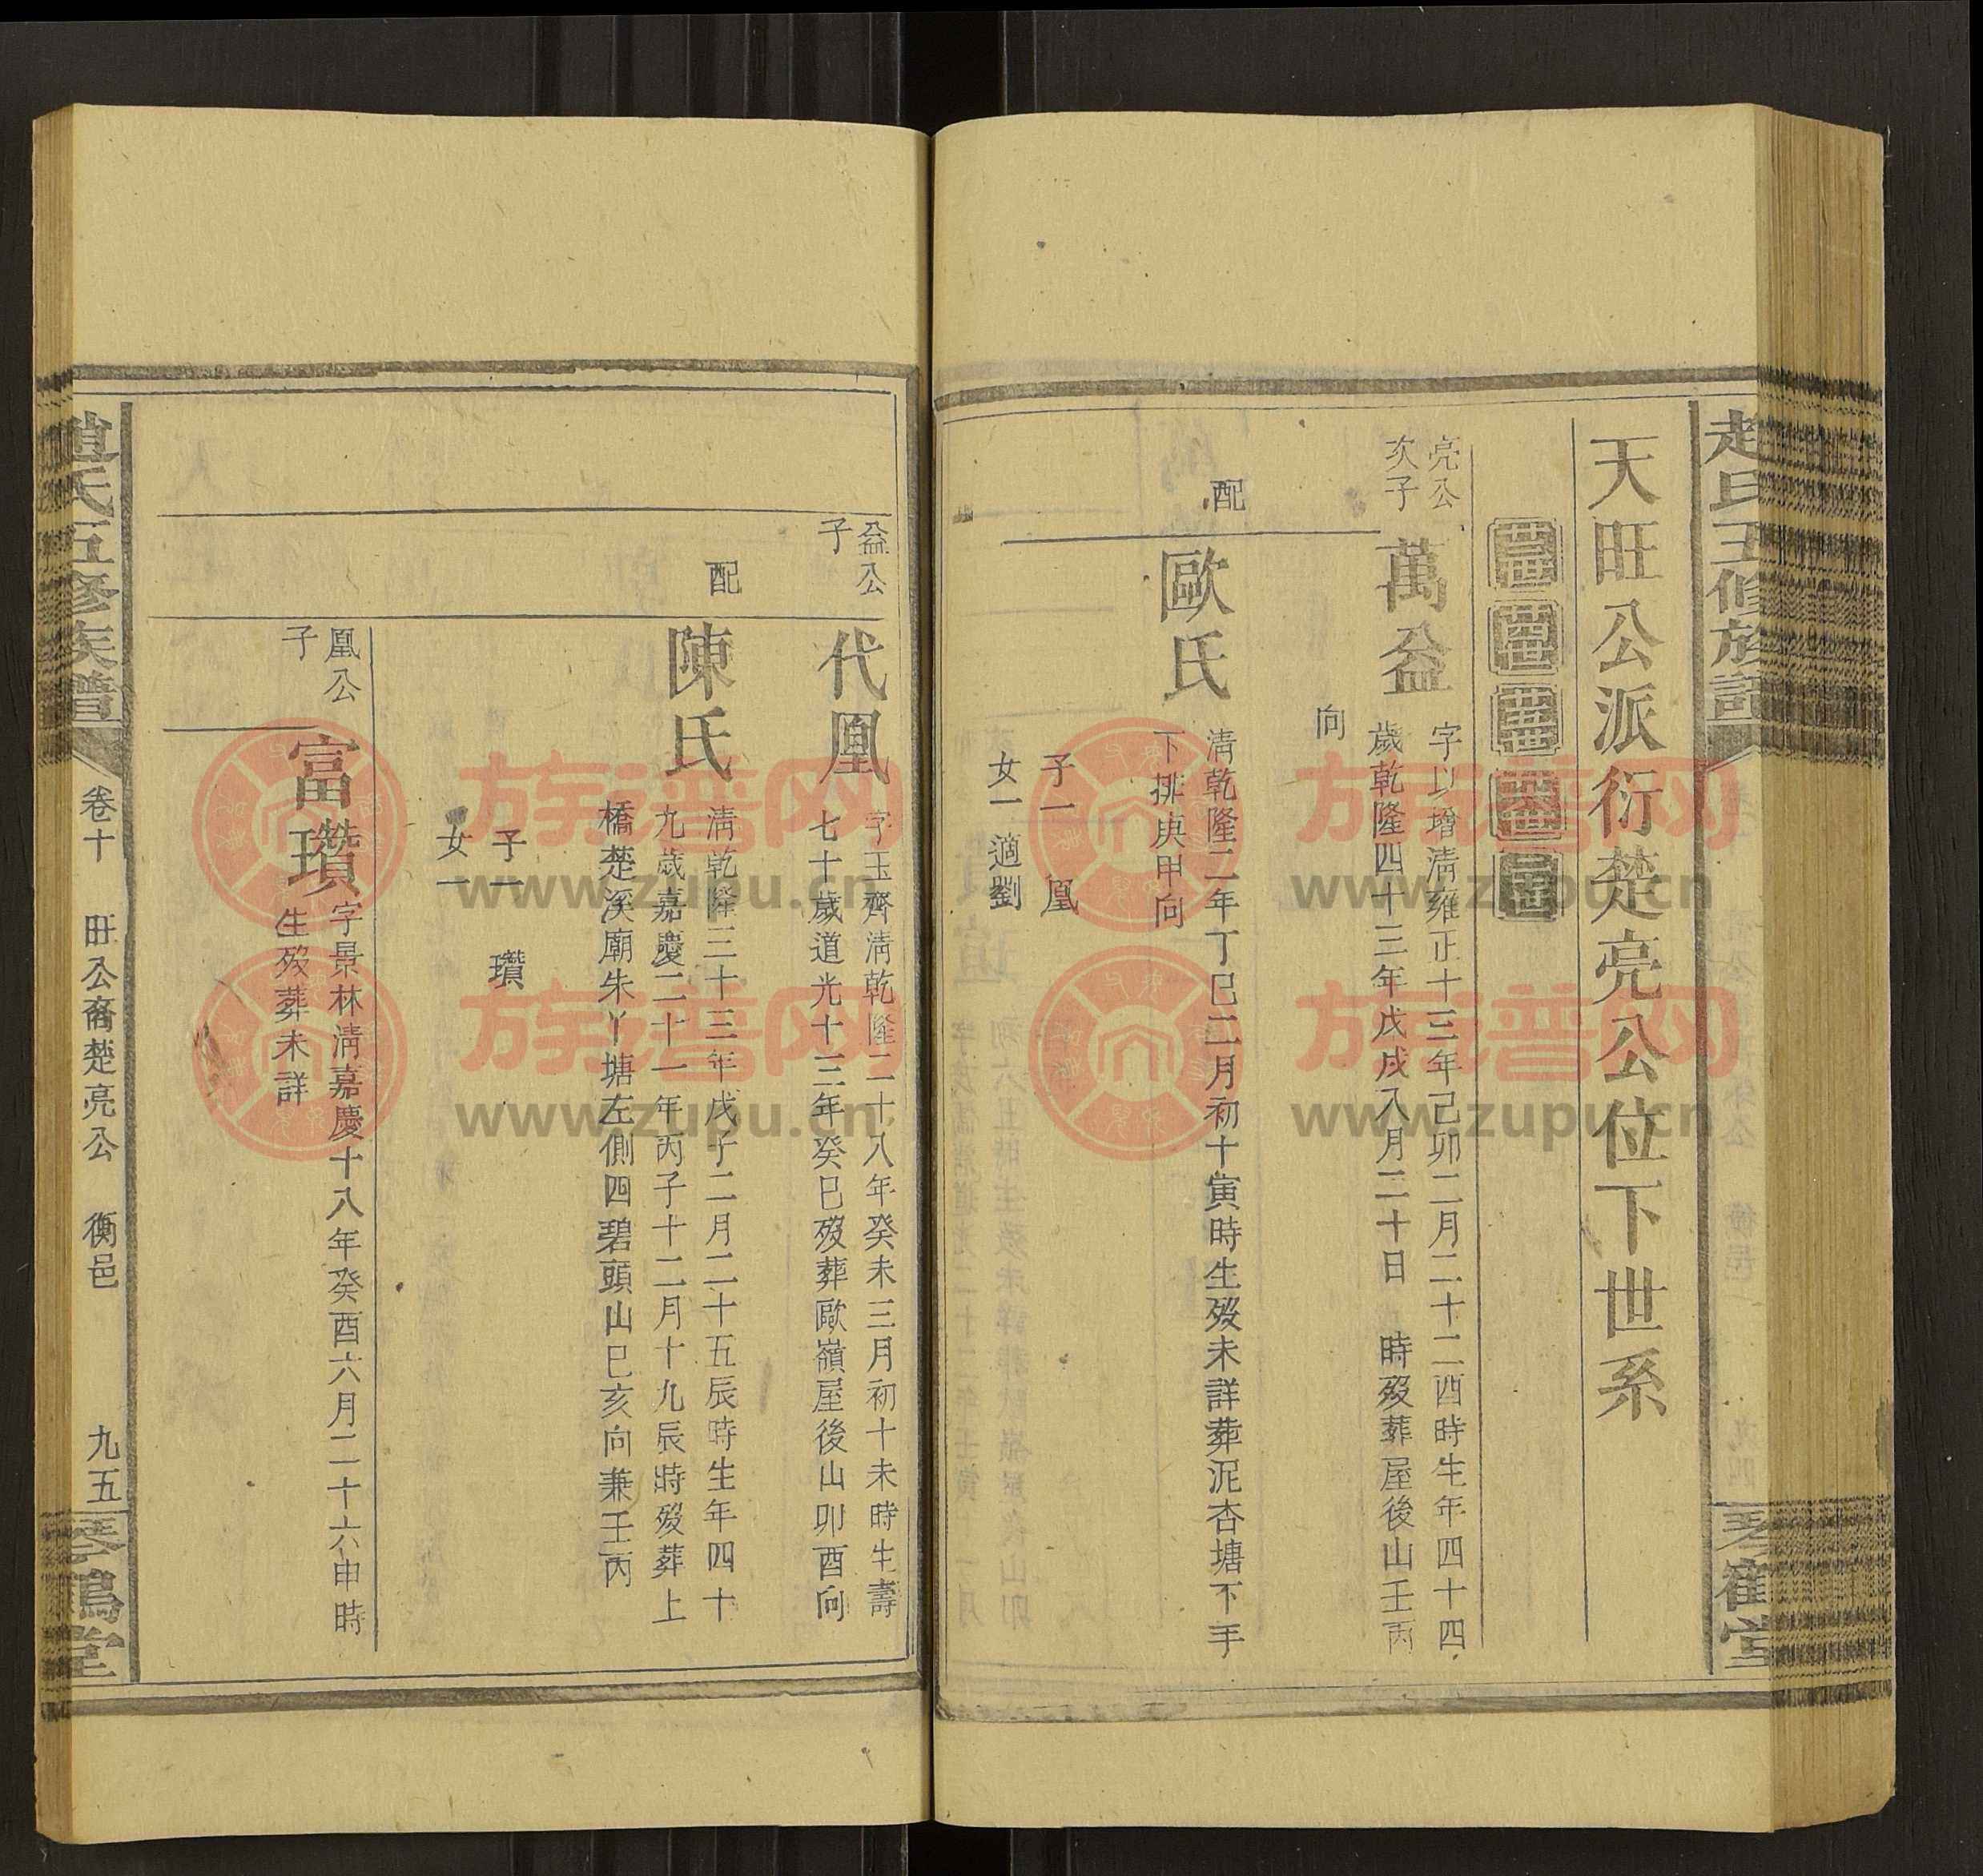 趙氏五修族譜
天旺公派衍楚亮公位下世系
亮公
次子
萬益
字以增清雍正十三年己卯二月二十二酉時生年四十四
歲乾隆四十三年戊戌八月二十日 時歿葬屋後山壬丙
向
配
歐氏
清乾隆二年丁巳二月初十寅時生歿未詳葬泥杏塘下手
下排庚甲向
子一 凰
女一適劉
益公
子
代凰
字玉齊清乾隆二十八年癸未三月初十未時生壽
七十歲道光十三年癸巳歿葬歐嶺屋後山卯酉向
配
陳氏
清乾隆三十三年戊子二月二十五辰時生年四十
九歲嘉慶二十一年丙子十二月十九辰時歿葬上
橋楚溪廟朱丫塘左側四碧頭山巳亥向兼壬丙
子一 瓚
女一
凰公
子
富瓚
字景林清嘉慶十八年癸酉六月二十六申時
生歿葬未詳
趙氏五修族譜
卷十
旺公裔楚亮公 衡邑
九五
琴鶴堂
族谱网
www.zupu.cn
族谱网
www.zupu.cn
族谱网
www.zupu.cn
族谱网
www.zupu.cn